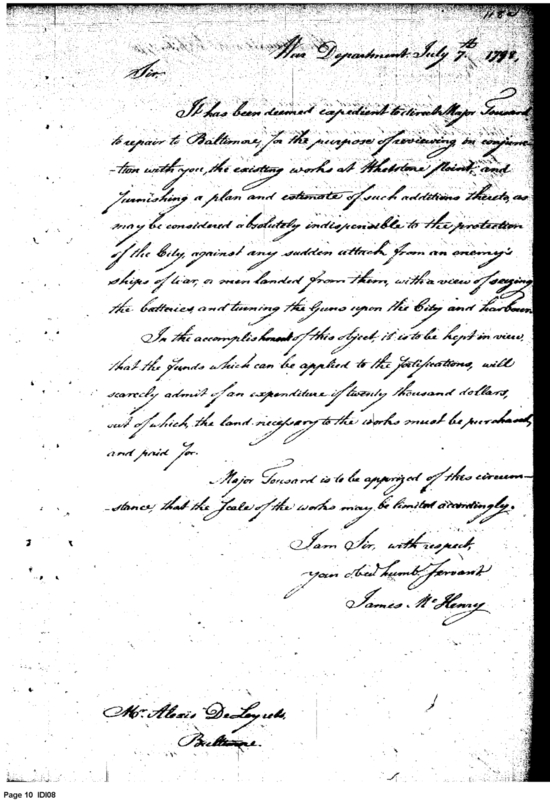 War Department July 7th 1798,
Sir.
It has been deemed expedient to direct Major Tousard
to repair to Baltimore, for the purpose of reviewing in conjunc-
-tion with you, the existing works at Whetstone Point, and
furnishing a plan and estimate of such additions thereto, as
may be considered absolutely indispensible to the protection
of the City, against any sudden attack from an enemy's
ships of war, or men landed from them, with a view of seizing
the batteries, and turning the Guns upon the City and harbour.
In the accomplishment of this object, it is to be kept in view,
that the funds which can be applied to the fortifications, will
scarcely admit of an expenditure of twenty thousand dollars,
out of which, the land necessary to the works must be purchased,
and paid for.
Major Tousard is to be apprized of this circum-
-stance, that the Scale of the works may be limited accordingly.
I am Sir, with respect,
your obed humb. Servant
James McHenry
Mr. Alexis De
Baltimore.
Page 10 IDI08